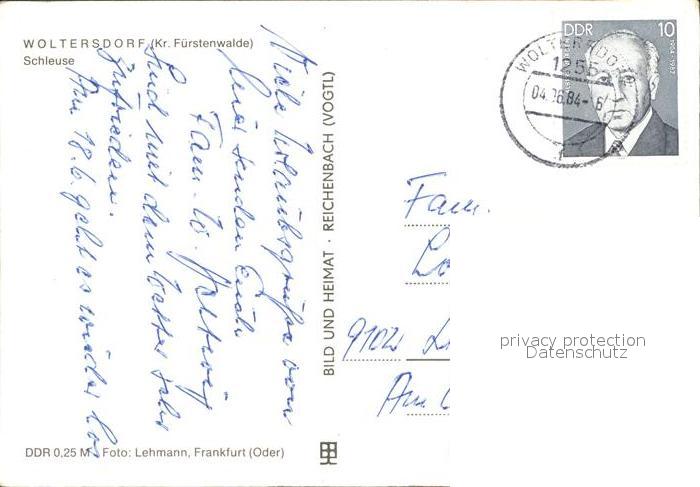 WOLTERSDORF (Kr. Fürstenwalde)
Schleuse
Viele Urlaubsgrüße von
hier senden Euch
Fam. W.
Sind mit dem Wetter sehr
zufrieden.
Am 18.6. geht es wieder los
BILD UND HEIMAT · REICHENBACH (VOGTL)
DDR 10
1904-1987
WOLTERSDORF
1255
04.06.84-6
Fam.
Lo
9102
Am
privacy protection
Datenschutz
DDR 0,25 M Foto: Lehmann, Frankfurt (Oder)